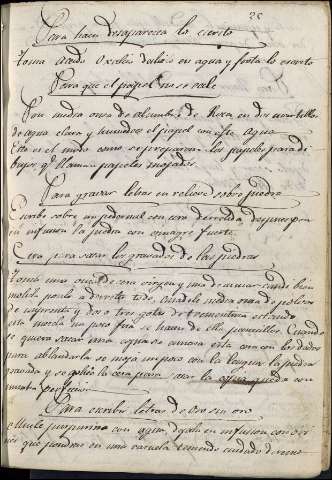 25
Para hacer desaparecer lo escrito
Toma acido Oxalico disuelto en agua y frota lo escrito
Para que el papel no se cale
Pon media onza de alumbre de Roca en dos cuartillos
de agua clara y humedece el papel con esta Agua
Este es el modo como se preparan los papeles para di
bujar q.e llaman papeles mojados.
Para gravar letras en relieve sobre piedra
Escribe sobre un pedernal con cera derretida, despues pon
en infusion la piedra con vinagre fuerte.
Cera para sacar los gravados de las piedras
Toma una onza de cera virgen y una de azucar cande bien
molida ponlo a derretir todo, añadele media onza de polvos
de imprenta y dos o tres gotas de trementina estando
esta mezcla un poco fria se hacen de ella panecillos. Cuando
se quiera sacar una copia se amasa esta cera con los dedos
para ablandarla se moja un poco con la lengua la piedra
gravada y se aplica la cera para sacar la copia queda con
mucha perfeccion
Para escribir letras de oro sin oro
Muele purpurina con agua, dejala en infusion con ori
nes que pondras en una cazuela teniendo cuidado de reno